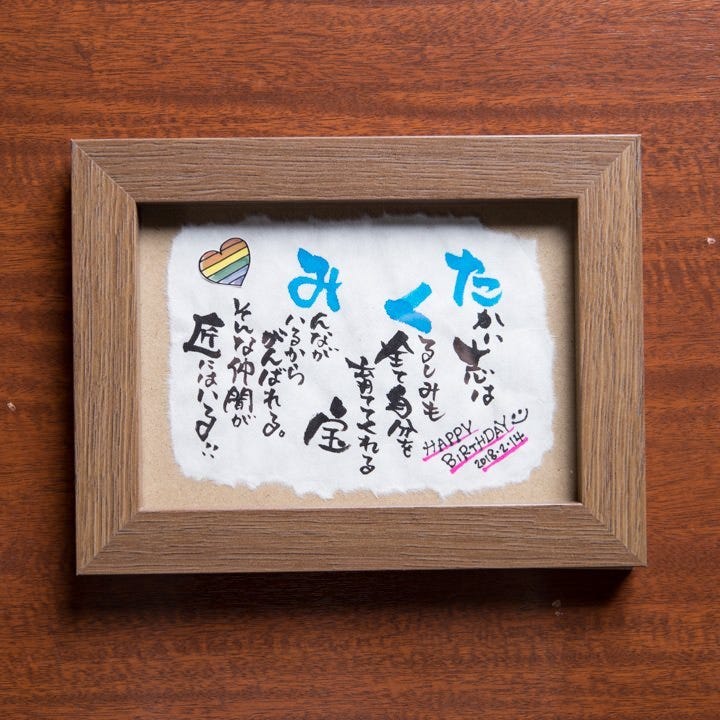 たかい志は
くるしみも
全て自分を
育ててくれる
宝
みんなが
いるから
がんばれる。
そんな仲間が
匠にはいる!!
HAPPY
BIRTHDAY
2018.2.14